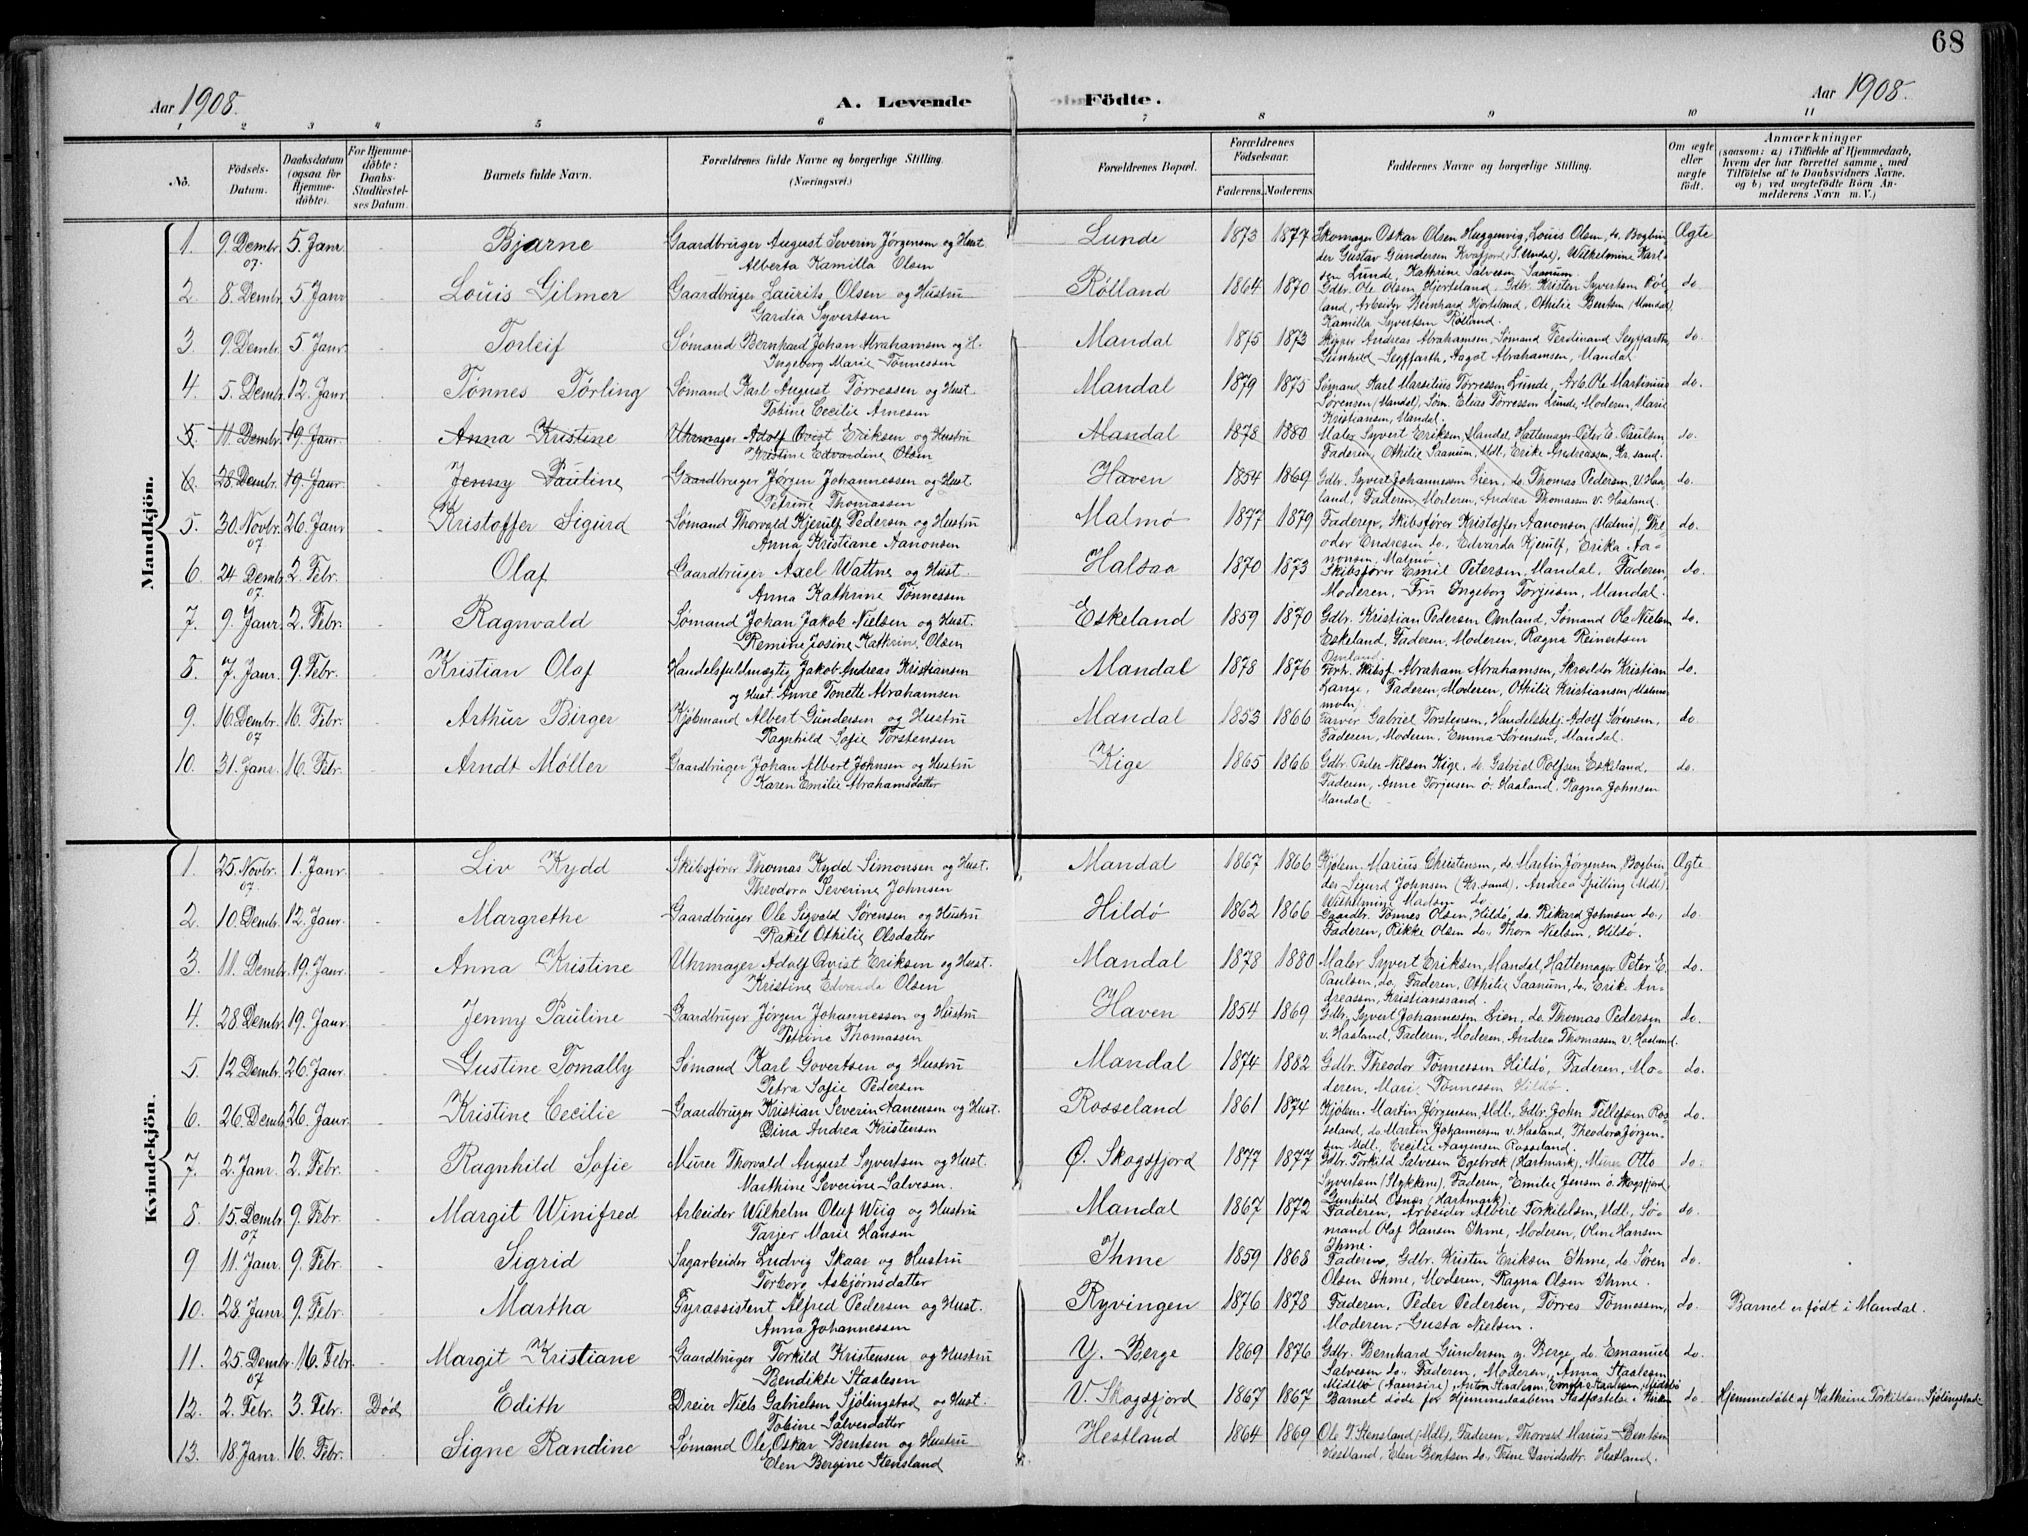 68
Aar 1908. A. Levende Födte. Aar 1908.
1 2 3 4 5 6 7 8 9 10 11
No. Födsels-Datum. Daabsdatum (ogsaa for Hjemmedöbte). For Hjemmedöbte: Daabs-Stadfæstelses Datum. Barnets fulde Navn. Forældrenes fulde Navne og borgerlige Stilling. (Næringsvei.) Forældrenes Bopæl. Forældrenes Födselsaar. Faderens. Moderens. Faddernes Navne og borgerlige Stilling. Om ægte eller uægte födt. Anmærkninger (saasom: a) i Tilfælde af Hjemmedaab, hvem der har forrettet samme, med Tilföielse af to Daabsvidners Navne, og b) ved uægtefödte Börn Anmelderens Navn m. V.)
Mandkjön.
1. 9. Dembr. 07. 5. Janr. Bjarne Gaardbruger August Severin Jørgensen og Hust. Lunde 1873 1877 Skomager Oskar Olsen Huggenvig, Louis Olsen, do. Bogbin- Ægte
Alberta Kamilla Olsen der Gustav Gundersen Kvafjord (S. Undal), Wilhelmine Karl-
sen Lunde, Kathrine Salvesen Saanum.
2. 8. Dembr. 5 Janr. Louis Gilmer Gaardbruger Laurits Olsen og Hustru Rølland 1864 1870 Gdbr. Ole Olsen Hjorteland, Gdbr. Kristen Syvertsen Røl- do
Gardia Syvertsen land, Arbeider Bernhard Hjorteland, Othilie Bentsen (Mandal),
Kamilla Syvertsen Rølland.
3. 9. Dembr. 5 Janr. Torleif Sømand Bernhard Johan Abrahamsen og H. Mandal 1875 1873 Skipper Andreas Abrahamsen, Sømand Ferdinand Seyffarth, do.
Ingeborg Marie Tønnessen Gunhild Seyffarth, Aagot Abrahamsen, Mandal
4. 5. Dembr. 12. Janr. Tønnes Tørling Sømand Karl August Tørressen og Hust. Mandal 1879 1875 Sømand Karl Marselius Tørressen Lunde, Arb. Ole Martinius do.
Tobine Cecilie Arnesen Sørensen (Mandal), Søm. Elias Tørressen Lunde, Moderen, Marie
Kristiansen, Mandal.
5. 11. Dembr. 19. Janr. Anna Kristine Uhrmager Adolf Qvist Eriksen og Hustru Mandal 1878 1880 Maler Syvert Eriksen, Mandal, Hattemager Peter E. Paulsen, do.
Kristine Edvardine Olsen Faderen, Othilie Saanum, Mdl, Erike Andreassen, Kr.sand.
6. 28 Dembr. 19 Janr. Jenny Pauline Gaardbruger Jørgen Johannessen og Hust. Haven 1854 1869 Gdb. Syvert Johannessen Lien, do. Thomas Pedersen, V. Haa- do.
Petrine Thomassen land, Faderen, Moderen, Andrea Thomassen v. Haaland.
5. 30. Novbr. 07 26. Janr Kristoffer Sigurd Sømand Thorvald Kjerulf Pedersen og Hustru Malmø 1877 1879 Faderen, Skibsfører Kristoffer Aanonsen (Malmø), The- do.
Anna Kristiane Aanonsen odor Endresen do., Edvarda Kjerulf, Erika Aa-
nonsen, Malmø.
6. 24 Dembr. 07. 2. Febr. Olaf Gaardbruger Axel Wattne og Hust. Halsaa 1870 1873 Skibsfører Emil Petersen, Mandal, Faderen, do.
Anna Kathrine Tønnessen Moderen, Fru Ingeborg Torjusen, Mandal.
7. 9. Janr. 2. Febr. Ragnvald Sømand Johan Jakob Nielsen og Hust. Eskeland 1859 1870 Gdb. Kristian Pedersen Omland, Sømand Ole Nielsen do.
Remine Josine Kathrin. Olsen Eskeland, Faderen, Moderen, Ragna Reinertsen
Omland.
8. 7. Janr. 9. Febr. Kristian Olaf Handelsfuldmægtig Jakob Andreas Kristiansen Mandal 1878 1876 Forh. Skibsf. Abraham Abrahamsen, Skrædder Kristian do.
og Hust. Anne Tonette Abrahamsen Lange, Faderen, Moderen, Othilie Kristiansen (Malmø
moen)
9. 16. Dembr. 07 16. Febr. Arthur Birger Kjøbmand Albert Gundersen og Hustru Mandal 1853 1866 Farver Gabriel Torstensen, Handelsbetj. Adolf Sørensen, do
Ragnhild Sofie Torstensen Faderen, Moderen, Emma Sørensen, Mandal.
10. 31. Janr. 16. Febr. Arndt Møller Gaardbruger Johan Albert Johnsen og Hustru Kige 1865 1866 Gdb. Peder Nilsen Kige, do. Gabriel Rolfsen Eskeland, do.
Karen Emilie Abrahamsdatter Faderen, Anne Torjusen ö. Haaland, Ragna Johnsen
Mandal.
Kvindekjön.
1. 25. Novbr. 07. 1. Janr. Liv Kydd Skibsfører Thomas Kydd Simonsen og Hust. Mandal 1867 1866 Kjøbm. Marius Christensen, do. Martin Jørgensen, Bogbin- Ægte
Theodora Severine Johnsen der Sigurd Johnsen (Kr.sand), Andrea Spilling (Mdl),
Wilhelmine Madsen do
2. 10. Dembr. 12. Janr. Margrethe Gaardbruger Ole Sigvald Sørensen og Hustru Hildø 1862 1866 Gaardbr. Tønnes Olsen, Hildø, do. Rikard Johnsen do., do.
Rakel Othilie Olsdatter Faderen, Rikke Olsen do., Thora Nielsen, Hildø.
3. 11. Dembr. 19. Janr. Anna Kristine Uhrmager Adolf Qvist Eriksen og Hust. Mandal 1878 1880 Maler Syvert Eriksen, Mandal, Hattemager Peter E. do.
Kristine Edvarda Olsen Paulsen, do, Faderen, Othilie Saanum, do., Erik. An-
dreassen, Kristianssand.
4. 28. Dembr. 19. Janr. Jenny Pauline Gaardbruger Jørgen Johannessen og Hustru Haven 1854 1869 Gdbr. Syvert Johannessen Lien, do. Thomas Pedersen do.
Petrine Thomassen v. Haaland, Faderen, Moderen, Andrea Thomassen v. Haaland.
5. 12 Dembr. 26. Janr. Gustine Tomally Sømand Karl Govertsen og Hustru Mandal 1874 1882 Gdbr. Theodor Tønnessen Hildø, Faderen, Mo- do.
Petra Sofie Pedersen deren, Marie Tønnessen Hildø.
6. 26. Dembr. 26. Janr. Kristine Cecilie Gaardbruger Kristian Severin Aanensen og Hust. Rosseland 1861 1874 Kjøbm. Martin Jørgensen, Mdl, Gdbr. John Tellefsen Ros- do.
Dina Andrea Kristensen seland, do Martin Johannessen v. Haaland, Theodora Jørgen-
sen Mdl, Cecilie Aanensen Rosseland.
7. 2. Janr. 2. Febr. Ragnhild Sofie Murer Thorvald August Syvertsen og Hust. Ø. Skogsfjord 1877 1877 Gdbr. Torkild Salvesen Egebræk (Hartmark), Murer Otto do.
Marthine Severine Salvesen. Syvertsen (Stykkene), Faderen, Emilie Jensen ö. Skogsfjord,
Gunhild Osnes (Hartmark).
8. 15. Dembr. 07 9. Febr. Margit Winifred Arbeider Wilhelm Oluf Weig og Hustru Mandal 1867 1872 Faderen, Arbeider Albert Torkildsen, Mdl, Sø- do.
Tarjer Marie Hansen mand Olaf Hansen Ihme, Moderen, Oline Hansen
Ihme.
9 11. Janr. 9. Febr. Sigrid Sagarbeider Ludvig Skaar og Hustru Ihme 1859 1868 Faderen, Gdbr. Kristen Eriksen Ihme, do Sören do.
Torborg Asbjørnsdatter Olsen Ihme, Moderen, Ragna Olsen Ihme.
10. 28. Janr. 9. Febr. Martha Fyrassistent Alfred Pedersen og Hust. Ryvingen 1876 1878 Faderen, Peder Pedersen, Tørres Tønnessen, do. Barnet er født i Mandal.
Anna Johannessen Moderen, Gusta Nielsen.
11. 25. Dembr. 07 16. Febr. Margit Kristiane Gaardbruger Torkild Kristensen og Hustru Y. Berge 1869 1876 Gdbr. Bernhard Gundersen y. Berge, do. Emanuel do.
Bendikte Staalesen Salvesen do, Faderen, Moderen, Anna Staalesen
Midtbø
12. 2. Febr. 3. Febr. Död Edith Dreier Niels Gabrielsen Sjölingstad og Hust. V. Skogsfjord 1867 1867 Barnet døde før Hjemmedaabens Stadfæstelse i Kirken do. Hjemmedöbt af Kathrine Torkildsen Sjölingstad
Tobine Salvesdatter
13. 18 Janr. 16. Febr. Signe Randine Sømand Ole Oskar Bentsen og Hustru Hestland 1864 1869 Ole T. Stensland (Mdl), Faderen, Thorvald Marius Bentsen
Elen Bergine Stensland Hestland, Elen Bentsen do., Trine Davidsdtr. Hestland.